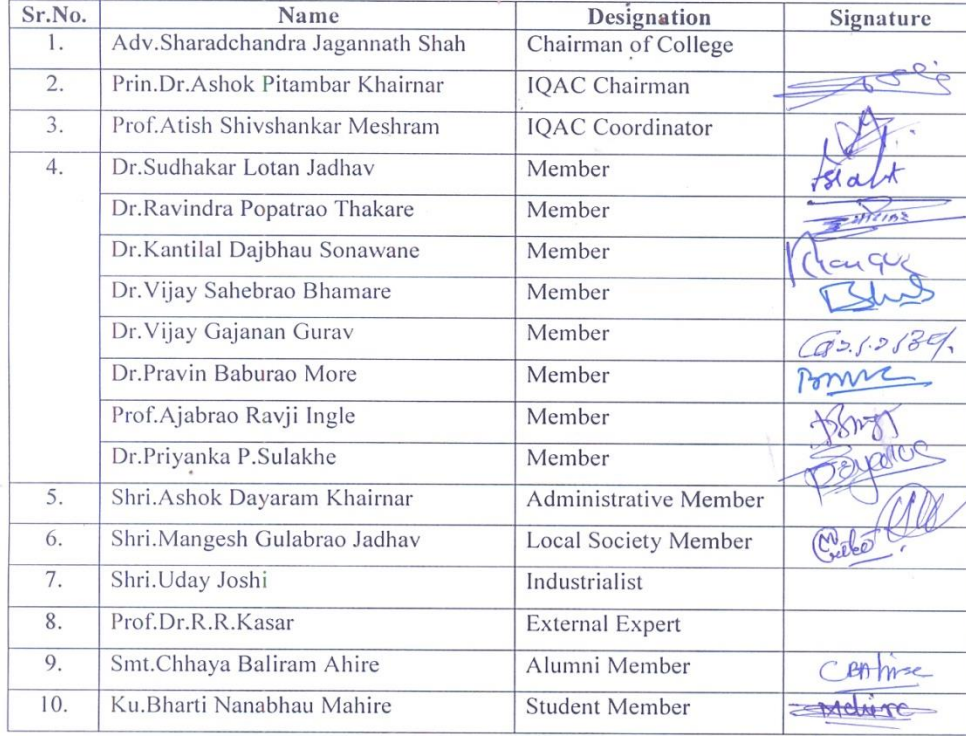 Sr.No. Name Designation Signature
1. Adv.Sharadchandra Jagannath Shah Chairman of College
2. Prin.Dr.Ashok Pitambar Khairnar IQAC Chairman
3. Prof.Atish Shivshankar Meshram IQAC Coordinator
4. Dr.Sudhakar Lotan Jadhav Member
Dr.Ravindra Popatrao Thakare Member
Dr.Kantilal Dajbhau Sonawane Member
Dr.Vijay Sahebrao Bhamare Member
Dr.Vijay Gajanan Gurav Member
Dr.Pravin Baburao More Member
Prof.Ajabrao Ravji Ingle Member
Dr.Priyanka P.Sulakhe Member
5. Shri.Ashok Dayaram Khairnar Administrative Member
6. Shri.Mangesh Gulabrao Jadhav Local Society Member
7. Shri.Uday Joshi Industrialist
8. Prof.Dr.R.R.Kasar External Expert
9. Smt.Chhaya Baliram Ahire Alumni Member CBAhire
10. Ku.Bharti Nanabhau Mahire Student Member